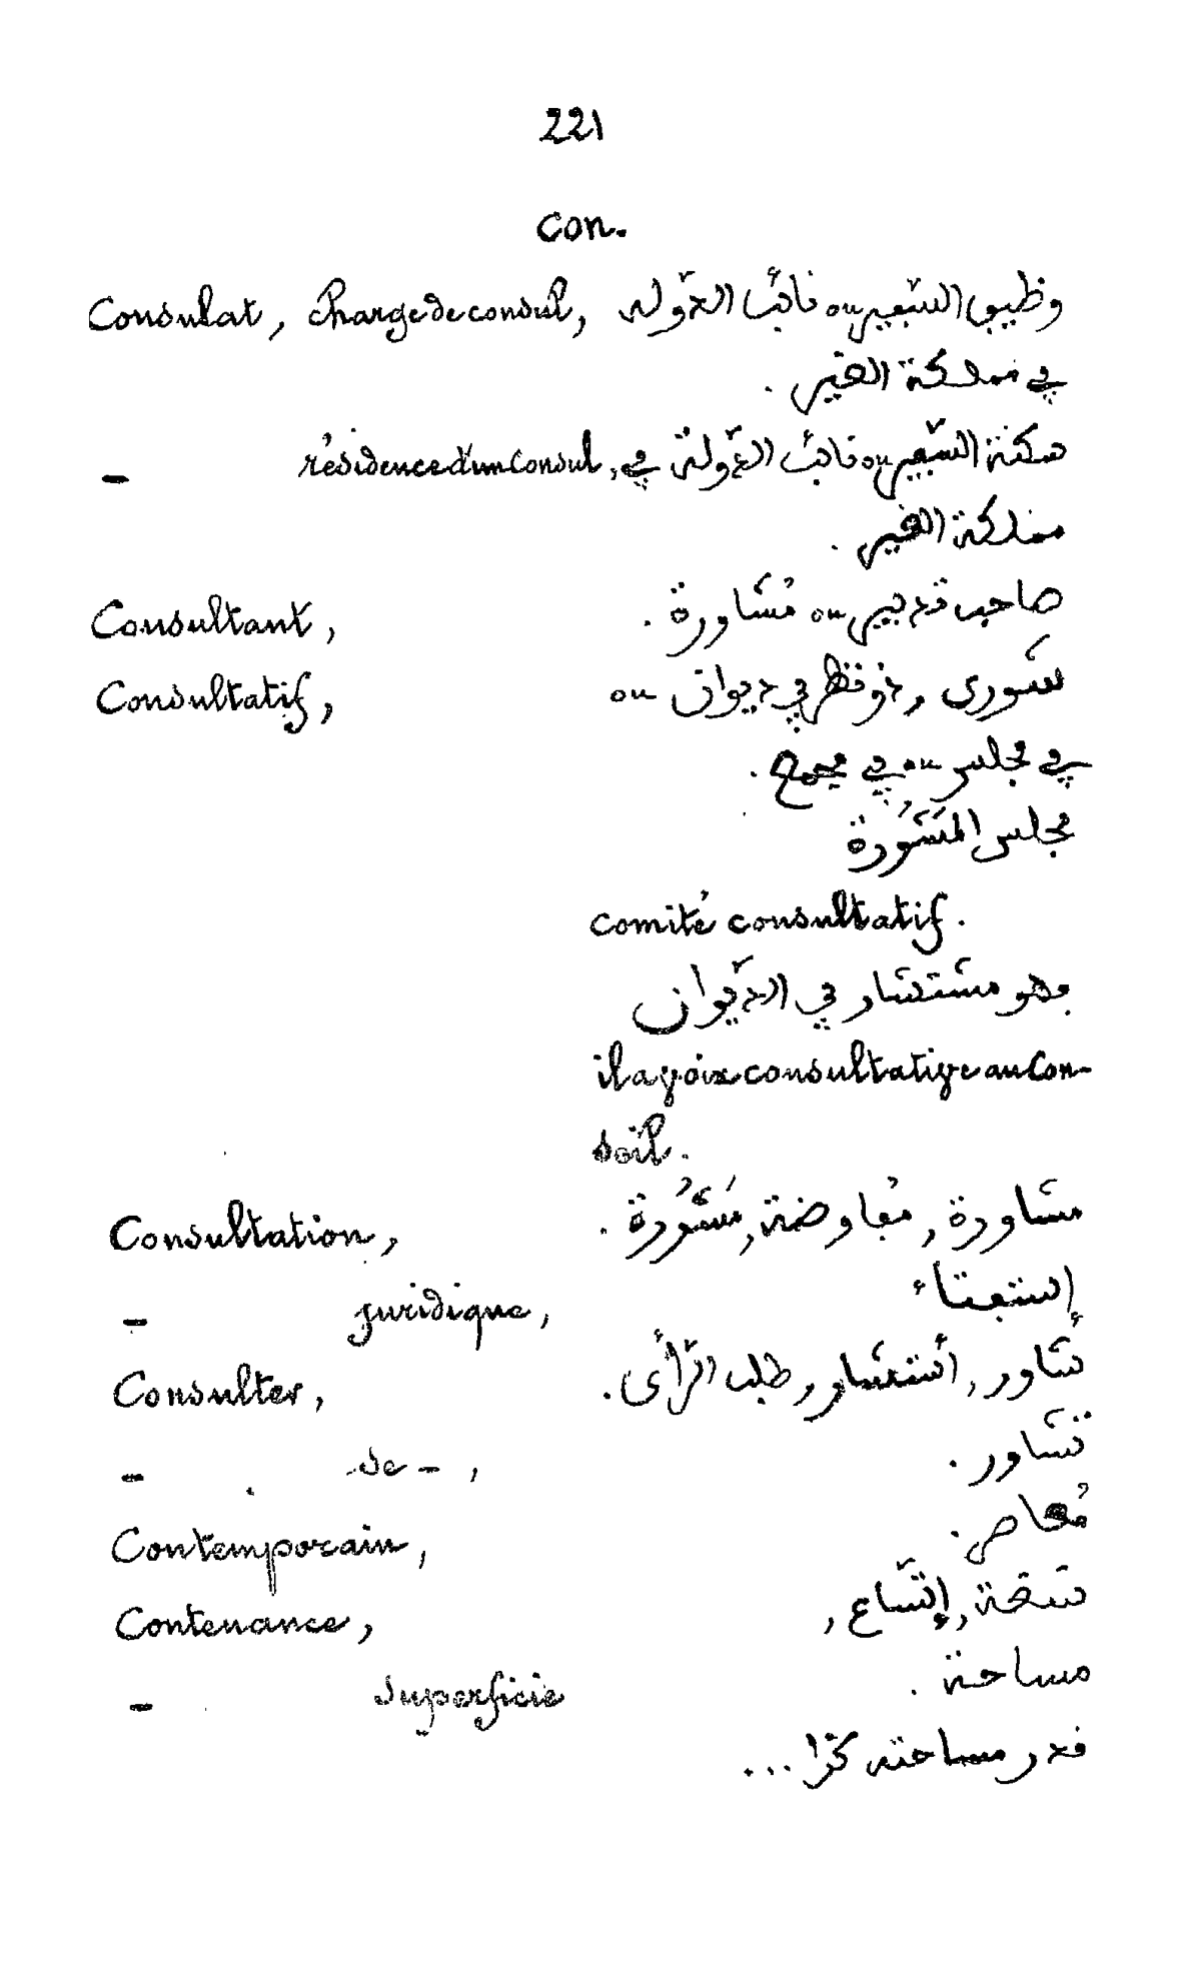 221
Con.
Consulat, charge de consul, وظيف السّفير ou نائب الدّولة
في مملكة الغير .
— résidence d'un consul, سكنة السّفير ou نائب الدّولة في
مملكة الغير .
Consultant, صاحب تدبير ou مُشَاورة .
Consultatif, شَوري, ذو نظر في ديوان ou
في مجلس ou في مجمع .
مجلس المَشَوُرة
comité consultatif.
وهو مستشار في الدّيوان
il a voix consultative au Con-
seil.
Consultation, مشاورة, مُفاوضة, مَشَوُرة .
— juridique, إستفتاء
Consulter, شَاور, أستشاور, طلب الرّأى .
— se —, تشَاور .
Contemporain, مُعاصر .
Contenance, سعة, إتّساع,
— superficie مساحة .
قدر مساحته كذا ...